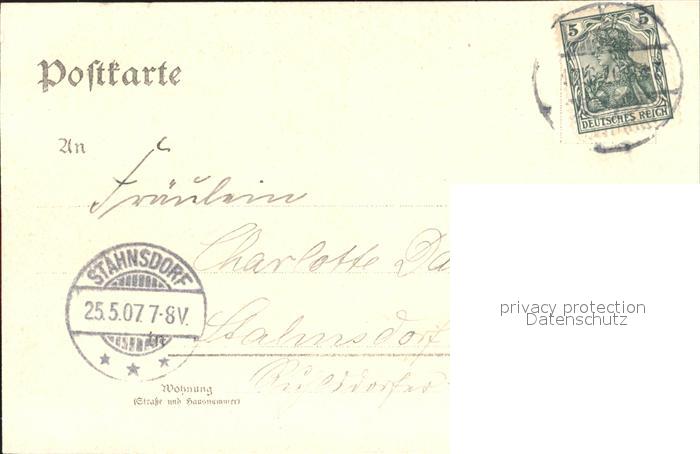 Postkarte
5 5
DEUTSCHES REICH
An
Fräulein
Charlotte Da
STAHNSDORF
25.5.07. 7-8V.
in
Stahnsdorf
Wohnung
(Straße und Hausnummer)
privacy protection
Datenschutz